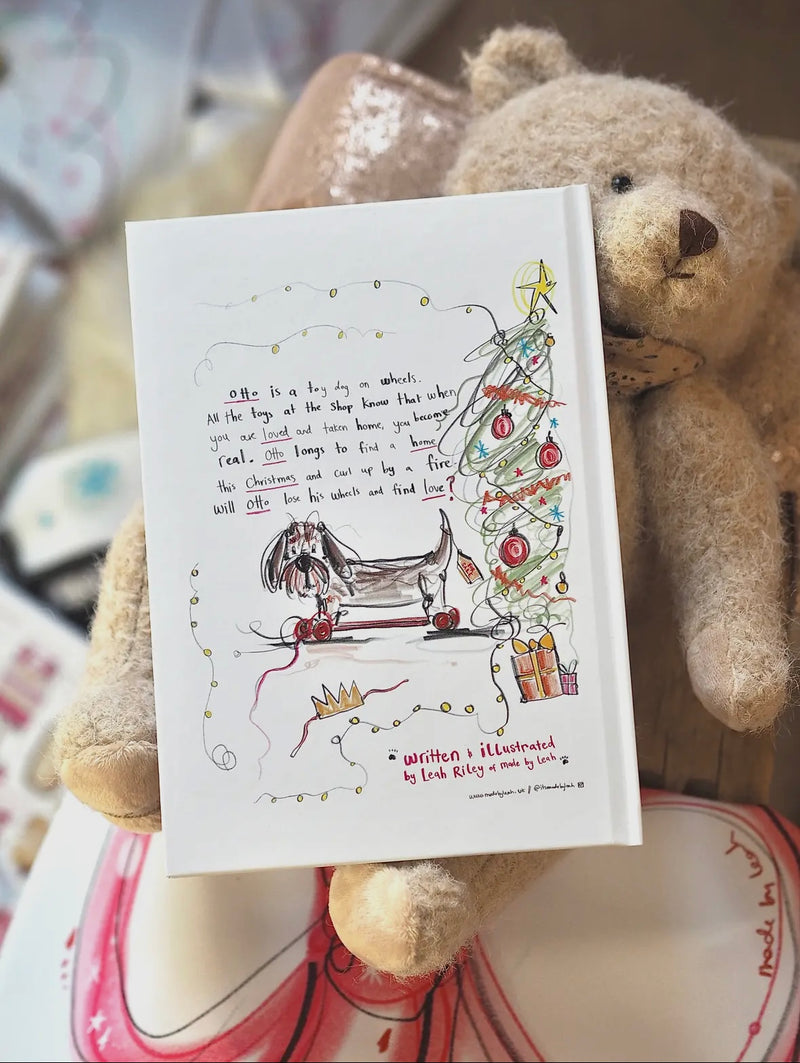 Otto is a toy dog on wheels.
All the toys at the shop know that when
you are loved and taken home, you become
real. Otto longs to find a home
this Christmas and curl up by a fire.
Will Otto lose his wheels and find love?
written & illustrated
by Leah Riley of made by Leah
www.madebyleah.uk // @itsmadebyleah
made by